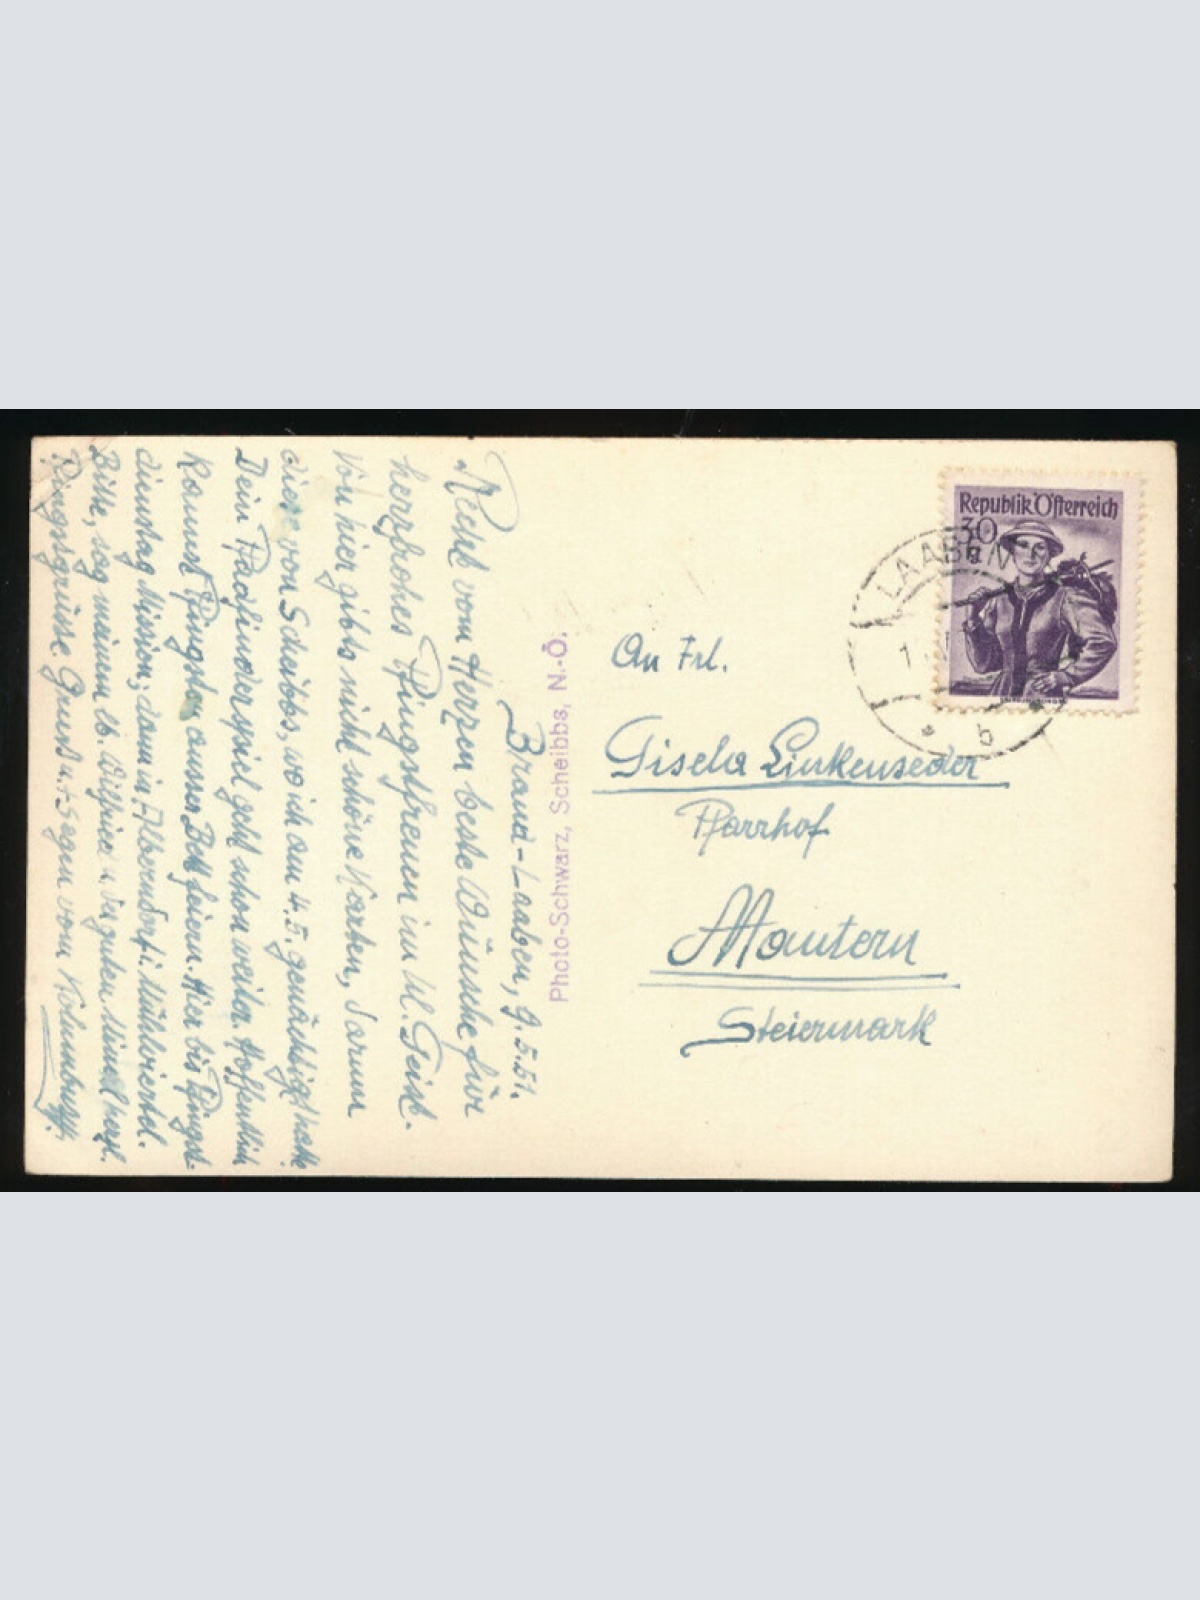 Brand-Laaben, 9.5.51.
Recht vom Herzen beste Wünsche für
herzfrohes Pfingstfreuen im hl. Geist.
Von hier gibts nicht schöne Karten, darum
diese von Scheibbs, wo ich am 4.5. genächtigt hatte
Dein Pfadfinderspiel geht schon weiter. Hoffentlich
kannst Pfingsten ausser Bett feiern. Hier bis Pfingst-
dienstag Mission; dann in Alberndorf i. Mühlviertel.
Bitte, sag meinem lb. Wilfried u. der guten herzl.
Pfingstgrüsse Gruß u. + Segen vom
Photo-Schwarz, Scheibbs, N.-Ö.
Republik Österreich
30
g
LAABEN
b
An Frl.
Gisela Linkenseder
Pfarrhof
Mautern
Steiermark